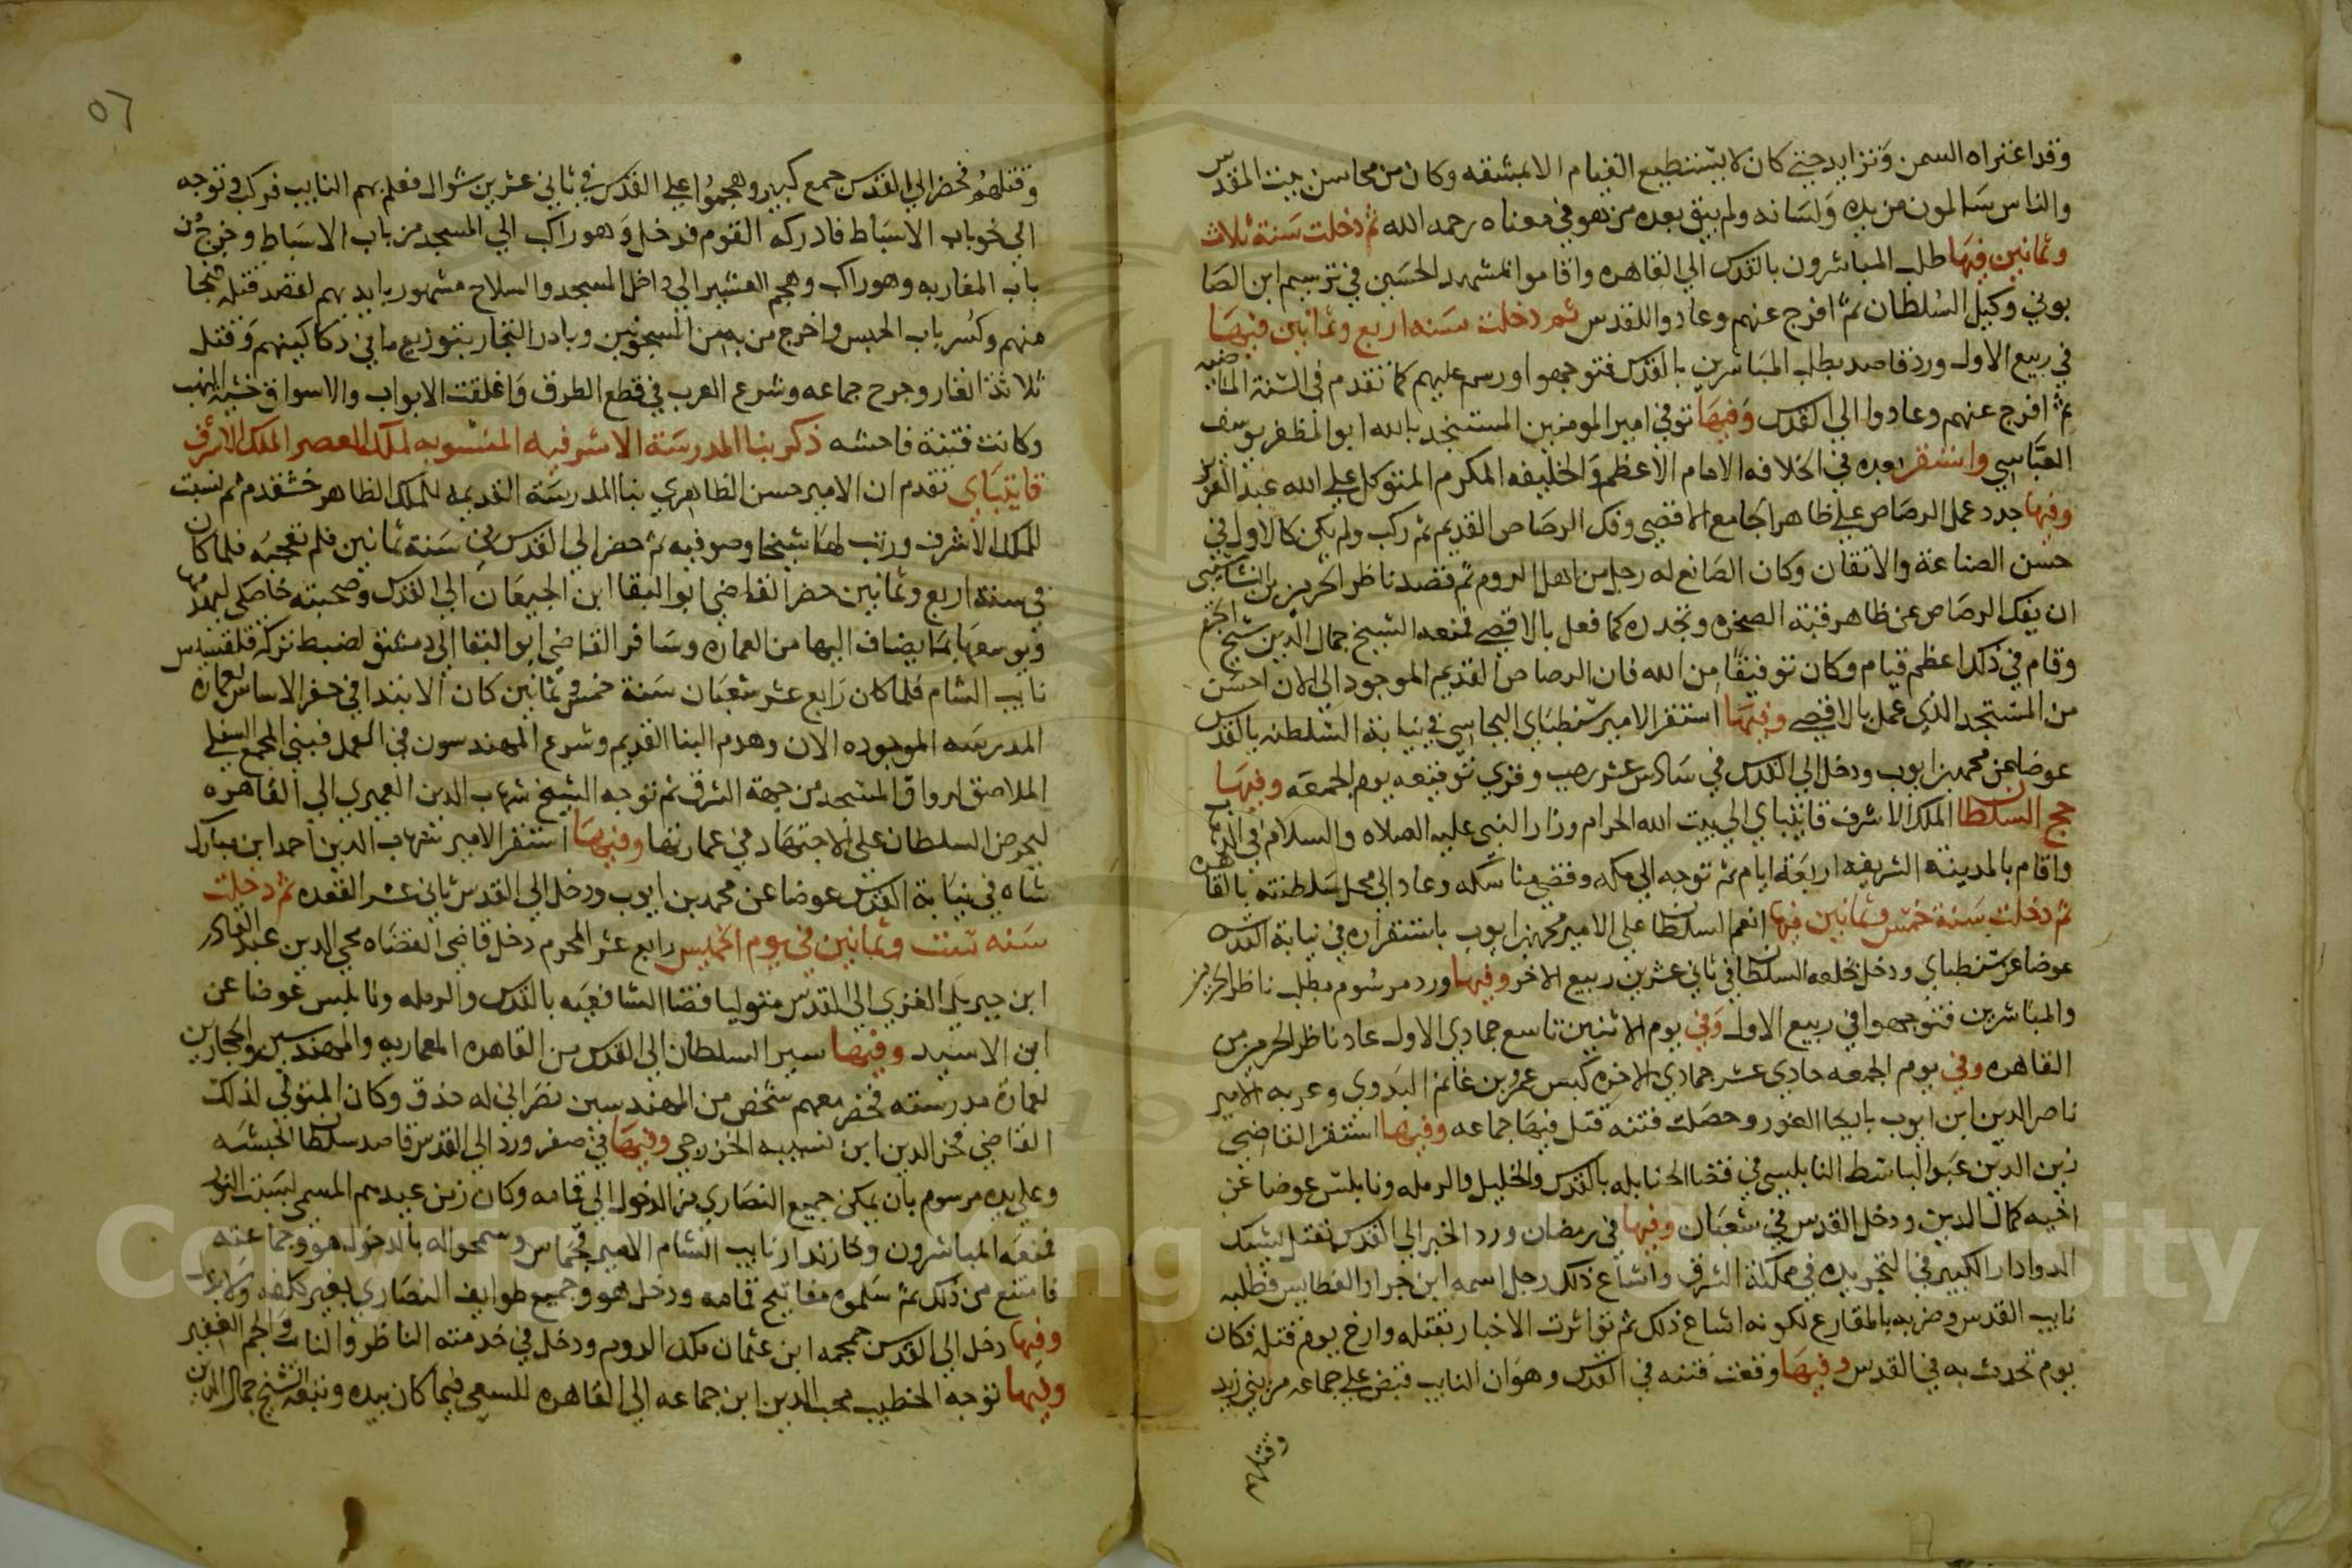 وقد اعتراه السمن وتزايد حتى كان لا يستطيع القيام الا بمشقه وكان من محاسن بيت المقدس
والناس سالمون من يده ولسانه ولم يبق بعده من هو في معناه رحمه الله ثم دخلت سنة ثلاث
وثمانين فيها طلب المباشرون بالقدس الي القاهره واقاموا بالمشهد الحسين في ترسيم ابن الصا
بوني وكيل السلطان ثم افرج عنهم وعادوا للقدس ثم دخلت سنه اربع وثمانين فيها
في ربيع الاول ورد قاصد بطلب المباشرين بالقدس فتوجهوا ورسم عليهم كما تقدم في السنة الماضيه
ثم افرج عنهم وعادوا الى القدس وفيها توفي امير المومنين المستنجد بالله ابو المظفر يوسف
العباسي واستقر بعده في الخلافه الامام الاعظم والخليفه المكرم المتوكل على الله عبد العزيز
وفيها جدد عمل الرصاص على ظاهر الجامع الاقصى وفك الرصاص القديم ثم ركب ولم يكن كالاول في
حسن الصناعة والاتقان وكان الصانع له رجل من اهل الروم ثم قصد ناظر الحرمين ابن النشاشيبي
ان يفك الرصاص عن ظاهر قبة الصخره ويجدده كما فعل بالاقصى فمنعه الشيخ جمال الدين شيخ
وقام في ذلك اعظم قيام وكان توفيقا من الله فان الرصاص القديم الموجود الي الان احسن
من المستجد الذي عمل بالاقصى وفيها استقر الامير سنطباي البجاسي في نيابة السلطنه بالقدس
عوضا عن محمد بن ايوب ودخل الي القدس في سادس عشر رجب وقري توقيعه يوم الجمعه وفيها
حج السلطان الملك الاشرف قايتباي الي بيت الله الحرام وزار النبي عليه الصلاه والسلام في
واقام بالمدينة الشريفه اربعة ايام ثم توجه الي مكه وقضى مناسكه وعاد الى محل سلطنته بالقاهره
ثم دخلت سنة خمس وثمانين فيها انعم السلطان على الامير محمد بن ايوب باستقراره في نيابة القدس
عوضا عن سنطباي ودخل بخلعه السلطان في ثاني عشرين ربيع الاخر وفيها ورد مرسوم بطلب ناظر الحرمين
والمباشرين فتوجهوا في ربيع الاول وفي يوم الاثنين تاسع جمادي الاول عاد ناظر الحرمين من
القاهره وفي يوم الجمعه حادي عشر جمادي الاخره كبس عمرو بن غانم البدوي وعربه الامير
ناصر الدين ابن ايوب باريحا الغور وحصلت فتنه قتل فيها جماعه وفيها استقر القاضي
زين الدين عبد الباسط النابلسي في قضا الحنابله بالقدس والخليل والرمله ونابلس عوضا عن
اخيه كمال الدين ودخل القدس في شعبان وفيها في رمضان ورد الخبر الي القدس بقتل يشبك
الدوادار الكبير في التجريده في مملكة الشرق واشاع ذلك رجل اسمه ابن جرار القطايس فطلبه
نايب القدس وضربه بالمقارع لكونه اشاع ذلك ثم تواترت الاخبار بقتله وارخ يوم قتله فكان
يوم تحدث به في القدس وفيها وقعت فتنه في القدس وهو ان النايب قبض على جماعه من بني زيد
وقتلهم
٥٦
وقتلهم فحضر الي القدس جمع كبير وهجموا على القدس في ثاني عشرين شوال فعلم بهم النايب فركب وتوجه
الى نحو باب الاسباط فادركه القوم فدخل وهو راكب الي المسجد من باب الاسباط وخرج من
باب المغاربه وهو راكب وهجم العشير الي داخل المسجد والسلاح مشهور بايديهم لقصد قتله فنجا
منهم وكسر باب الحبس واخرج من به من المسجونين وبادر التجار بتوزيع ما في دكاكينهم وقتل
ثلاثة انفار وجرح جماعه وشرع العرب في قطع الطرق واغلقت الابواب والاسواق خشية النهب
وكانت فتنة فاحشه ذكر بنا المدرسة الاشرفيه المنسوبه لملك العصر الملك الاشرف
قايتباي تقدم ان الامير حسن الظاهري بنا المدرسة القديمه للملك الظاهر خشقدم ثم نسبت
للملك الاشرف ورتب لها شيخا وصوفيه ثم حضر الي القدس في سنة ثمانين فلم تعجبه فلما كان
في سنة اربع وثمانين حضر القاضي ابو البقا ابن الجيعان الي القدس وصحبته خاصكي ليهدمها
ويوسعها بما يضاف اليها من العماره وسافر القاضي ابو البقا الى دمشق لضبط تركة قلقسيس
نايب الشام فلما كان رابع عشر شعبان سنة خمس وثمانين كان الابتدا في حفر الاساس لعمارة
المدرسه الموجوده الان وهدم البنا القديم وشرع المهندسون في العمل فبني المجمع السفلي
الملاصق لرواق المسجد من جهة الشرق ثم توجه الشيخ شهاب الدين العميري الي القاهره
ليحرض السلطان على الاجتهاد في عمارتها وفيها استقر الامير شهاب الدين احمد ابن مبارك
شاه في نيابة القدس عوضا عن محمد بن ايوب ودخل الي القدس ثاني عشر القعده ثم دخلت
سنه ست وثمانين في يوم الخميس رابع عشر المحرم دخل قاضي القضاه محي الدين عبد القادر
ابن جبريل الغزي الى القدس متوليا قضا الشافعيه بالقدس والرمله ونابلس عوضا عن
ابن الاسيد وفيها سير السلطان الي القدس من القاهره المعماريه والمهندسين والحجارين
لعمارة مدرسته فحضر معهم شخص من المهندسين نصراني له حذق وكان المتولي لذلك
القاضي فخر الدين ابن نسيبه الخزرجي وفيها في صفر ورد الي القدس قاصد سلطان الحبشه
وعلى يده مرسوم بان يمكن جميع النصاري من الدخول الي قمامه وكان زمن عيدهم المسمى بسبت النور
فمنعه المباشرون وخازندار نايب الشام الامير قجماس وسمحوا له بالدخول هو وجماعته
فامتنع من ذلك ثم سلموه مفاتيح قمامه ودخل هو وجميع طوايف النصاري بغير كلفه ولا
وفيها دخل الي القدس جمجمه ابن عثمان ملك الروم ودخل في خدمته الناظر والنايب والجم الغفير
وفيها توجه الخطيب محب الدين ابن جماعه الي القاهره للسعي فيما كان بيده وتبعه الشيخ جمال الدين
Copyright © King Saud University